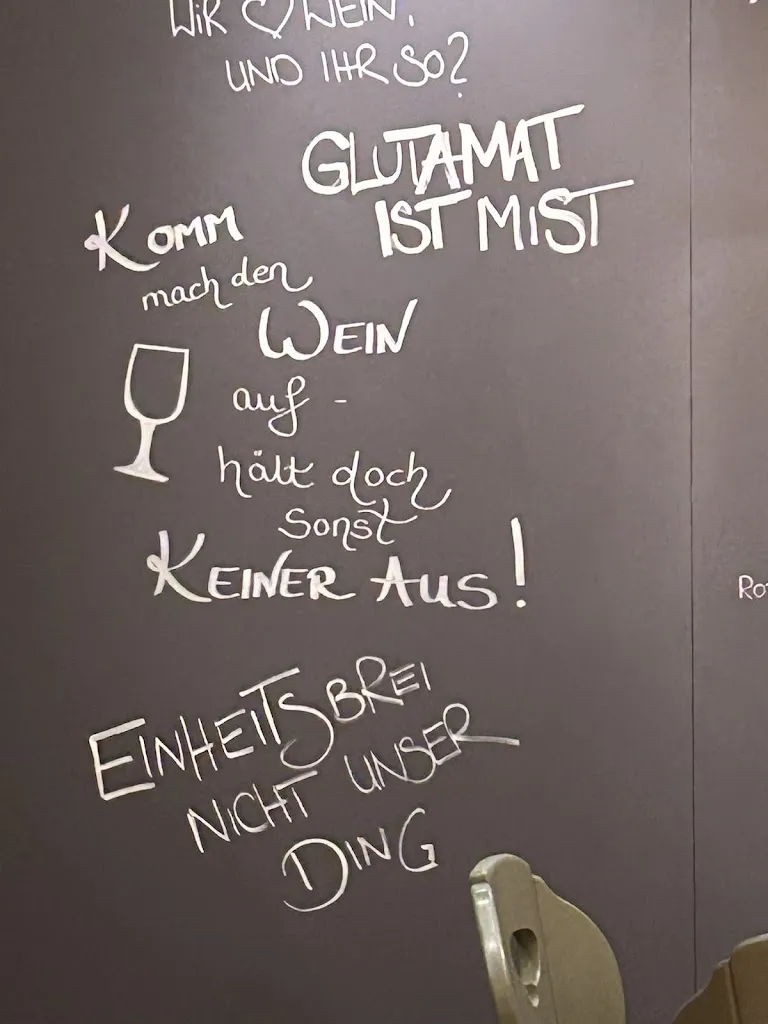 WIR ♡ WEIN.
UND IHR SO?
GLUTAMAT
IST MIST
KOMM
mach den
WEIN
auf -
hält doch
sonst
KEINER AUS!
EINHEITSBREI
NICHT UNSER
DING